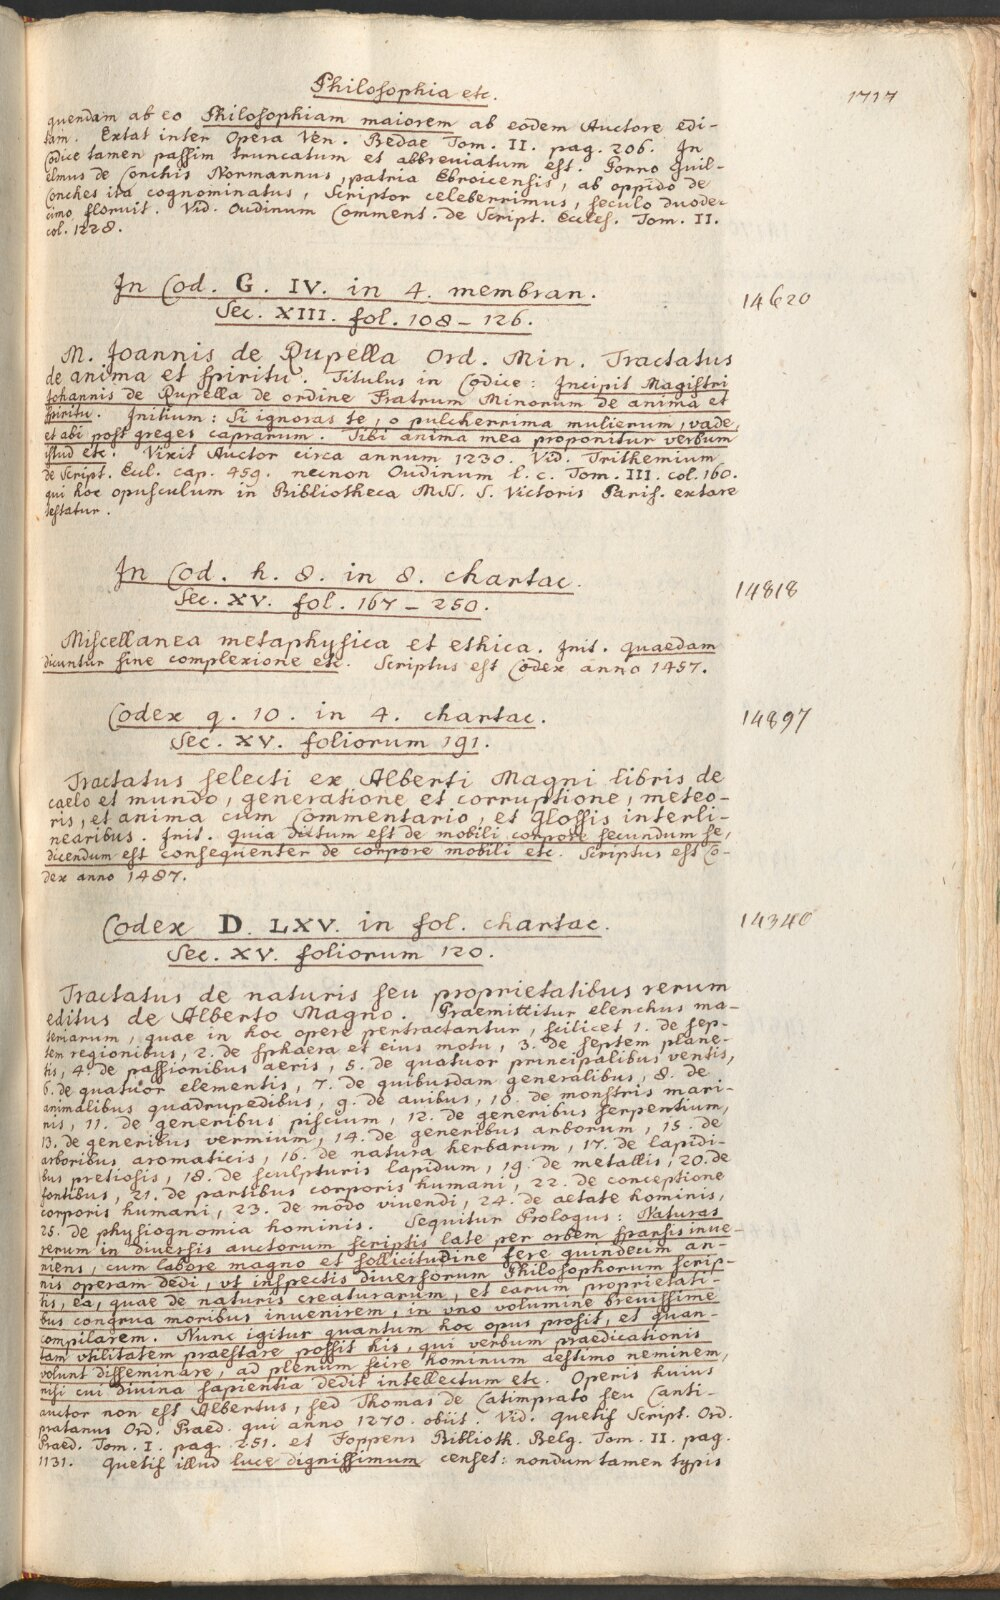 Philosophia etc.
1717
quendam ab eo Philosophiam maiorem ab eodem Auctore edi-
tam. Extat inter Opera Ven. Bedae Tom. II. pag. 206. In
Codice tamen passim truncatum et abbreviatum est. Porro Guil-
elmus de Conchis Normannus, patria Ebroicensis, ab oppido de
Conches ita cognominatus, Scriptor celeberrimus, seculo duode-
cimo floruit. Vid. Oudinum Comment. de Script. Eccles. Tom. II.
col. 1228.
In Cod. G. IV. in 4. membran.
14620
Sec. XIII. fol. 108 – 126.
M. Joannis de Rupella Ord. Min. Tractatus
de anima et spiritu. Titulus in Codice: Incipit Magistri
Johannis de Rupella de ordine Fratrum Minorum de anima et
spiritu. Initium: Si ignoras te, o pulcherrima mulierum, vade,
et abi post greges caprarum. Tibi anima mea proponitur verbum
istud etc. Vixit Auctor circa annum 1230. Vid. Trithemium
de Script. Eccl. cap. 459. necnon Oudinum l. c. Tom. III. col. 160.
qui hoc opusculum in Bibliotheca MSS. S. Victoris Paris. extare
testatur.
In Cod. h. 8. in 8. chartac.
14818
Sec. XV. fol. 167 – 250.
Miscellanea metaphysica et ethica. Init. quaedam
dicuntur sine complexione etc. Scriptus est Codex anno 1457.
Codex q. 10. in 4. chartac.
14897
Sec. XV. foliorum 191.
Tractatus selecti ex Alberti Magni libris de
caelo et mundo, generatione et corruptione, meteo-
ris, et anima cum Commentario, et Glossis interli-
nearibus. Init. quia dictum est de mobili corpore secundum se,
dicendum est consequenter de corpore mobili etc. Scriptus est Co-
dex anno 1487.
Codex D. LXV. in fol. chartac.
14340
Sec. XV. foliorum 120.
Tractatus de naturis seu proprietatibus rerum
editus de Alberto Magno. Praemittitur elenchus ma-
teriarum, quae in hoc opere pertractantur, scilicet 1. de sep-
tem regionibus, 2. de sphaera et eius motu, 3. de septem plane-
tis, 4. de passionibus aeris, 5. de quatuor principalibus ventis,
6. de quatuor elementis, 7. de quibusdam generalibus, 8. de
animalibus quadrupedibus, 9. de avibus, 10. de monstris mari-
nis, 11. de generibus piscium, 12. de generibus serpentium,
13. de generibus vermium, 14. de generibus arborum, 15. de
arboribus aromaticis, 16. de natura herbarum, 17. de lapidi-
bus pretiosis, 18. de sculpturis lapidum, 19. de metallis, 20. de
fontibus, 21. de partibus corporis humani, 22. de conceptione
corporis humani, 23. de modo vivendi, 24. de aetate hominis,
25. de physiognomia hominis. Sequitur Prologus: Naturas
rerum in diversis auctorum scriptis late per orbem sparsis inve-
niens, cum labore magno et sollicitudine fere quindecim an-
nis operam dedi, vt inspectis diversorum Philosophorum scrip-
tis, ea, quae de naturis creaturarum, et earum proprietati-
bus congrua moribus invenirem, in vno volumine brevissime
compilarem. Nunc igitur quantum hoc opus prosit, et quan-
tam vtilitatem praestare possit his, qui verbum praedicationis
volunt disseminare, ad plenum scire hominum aestimo neminem,
nisi cui divina sapientia dedit intellectum etc. Operis huius
auctor non est Albertus, sed Thomas de Catimprato seu Canti-
pratanus Ord. Praed. qui anno 1270. obiit. Vid. Quetif Script. Ord.
Praed. Tom. I. pag. 251. et Foppens Biblioth. Belg. Tom. II. pag.
1131. Quetif illud luce dignissimum censet: nondum tamen typis